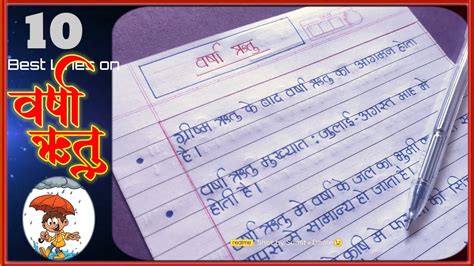 10
Best Lines on
वर्षा
ऋतु
वर्षा ऋतु
ग्रीष्म ऋतु के बाद वर्षा ऋतु का आगमन होता
है।
वर्षा ऋतु मुख्यात : जुलाई-अगस्त माह में
होती है।
वर्षा ऋतु में वर्षा के जल का भूमी
सामान्य हो जाता है।
कृषि में
realme Shot by